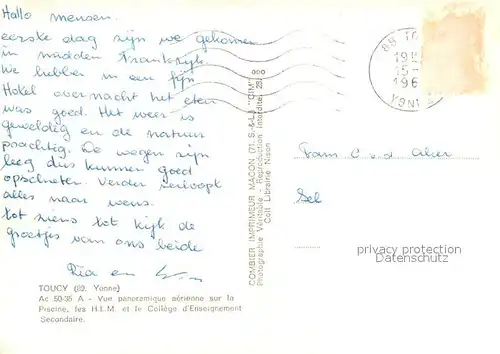 Hallo mensen.
eerste dag zijn we gekomen
in midden Frankrijk
We hebben in een fijn
Hotel overnacht het eten
was goed. Het weer is
geweldig en de natuur
prachtig. De wegen zijn
leeg dus kunnen goed
opschieten. Verder verloopt
alles naar wens.
tot ziens. tot kijk de
groetjes van ons beide
Ria en
TOUCY (89. Yonne)
Ac 50-35 A - Vue panoramique aérienne sur la
Piscine, les H.L.M. et le Collège d'Enseignement
Secondaire.
COMBIER IMPRIMEUR MACON (71. S.&L.) "CIM"
Photographie Véritable - Reproduction Interdite
Coll Librairie Nison
89 TO
15-
196
YONNE
Fam C.v.d.
privacy protection
Datenschutz